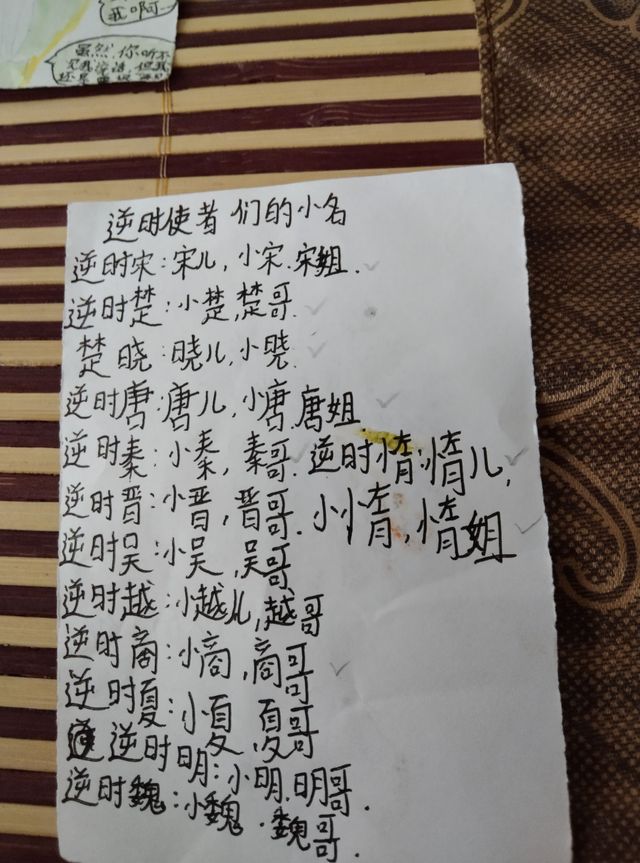 我啊…
虽然你听不
逆时使者们的小名
逆时宋:宋儿,小宋.宋姐.
逆时楚:小楚,楚哥.
楚晓:晓儿,小晓.
逆时唐:唐儿,小唐.唐姐.
逆时秦:小秦,秦哥.逆时情:情儿,
逆时晋:小晋,晋哥.小情,情姐
逆时吴:小吴,吴哥
逆时越:小越儿,越哥
逆时商:小商,商哥
逆时夏:小夏,夏哥
逆时明:小明.明哥.
逆时魏:小魏.魏哥.